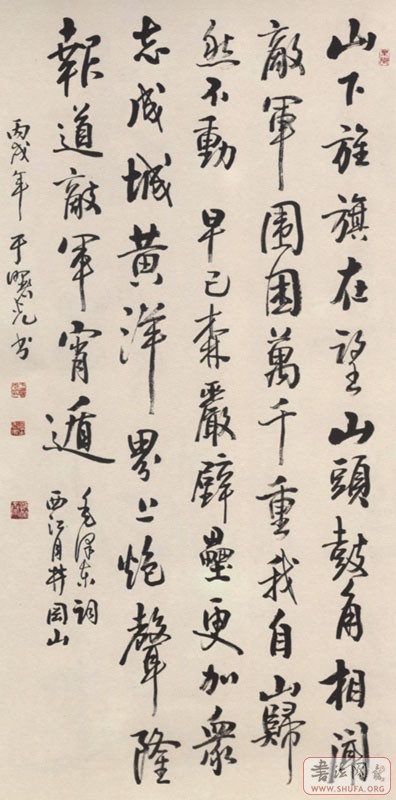 山下旌旗在望山頭鼓角相聞
敵軍围困萬千重我自巋
然不動 早已森嚴壁壘更加眾
志成城黄洋界上炮聲隆
報道敵軍宵遁
毛澤东詞
西江月井岡山
丙戌年于曙光书
WWW.SHUFA.ORG